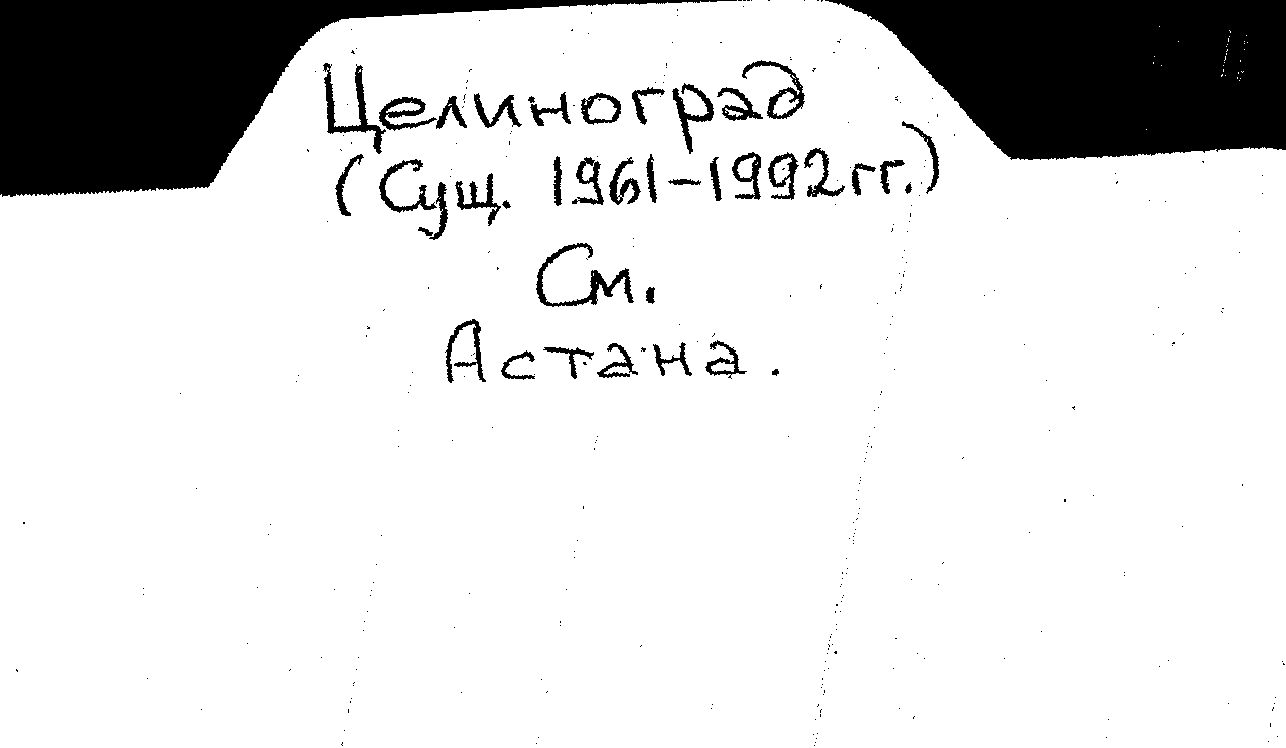 Целиноград
(Сущ. 1961-1992гг.)
См.
Астана.